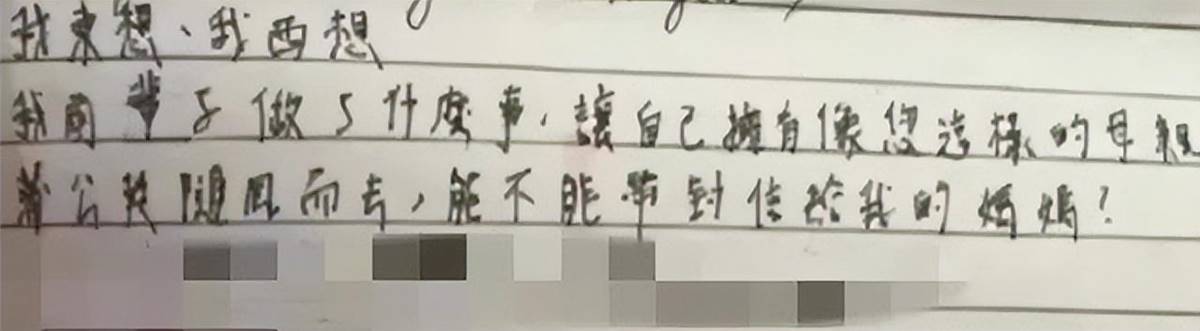 我東想、我西想
我前輩子做了什麼事，讓自己擁有像您這樣的母親
蒲公英隨風而去，能不能帶封信給我的媽媽？